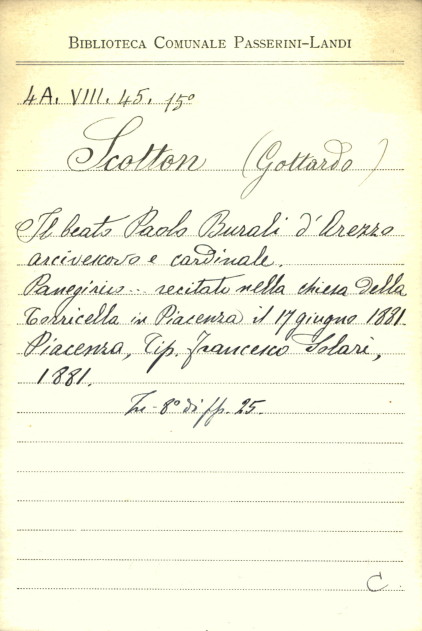 BIBLIOTECA COMUNALE PASSERINI-LANDI
4A. VIII. 45. 15º
Scotton (Gottardo)
Il beato Paolo Burali d'Arezzo
arcivescovo e cardinale.
Panegirico... recitato nella chiesa della
Torricella in Piacenza il 17 giugno 1881.
Piacenza, Tip. Francesco Solari,
1881.
In-8º di pp. 25.
C